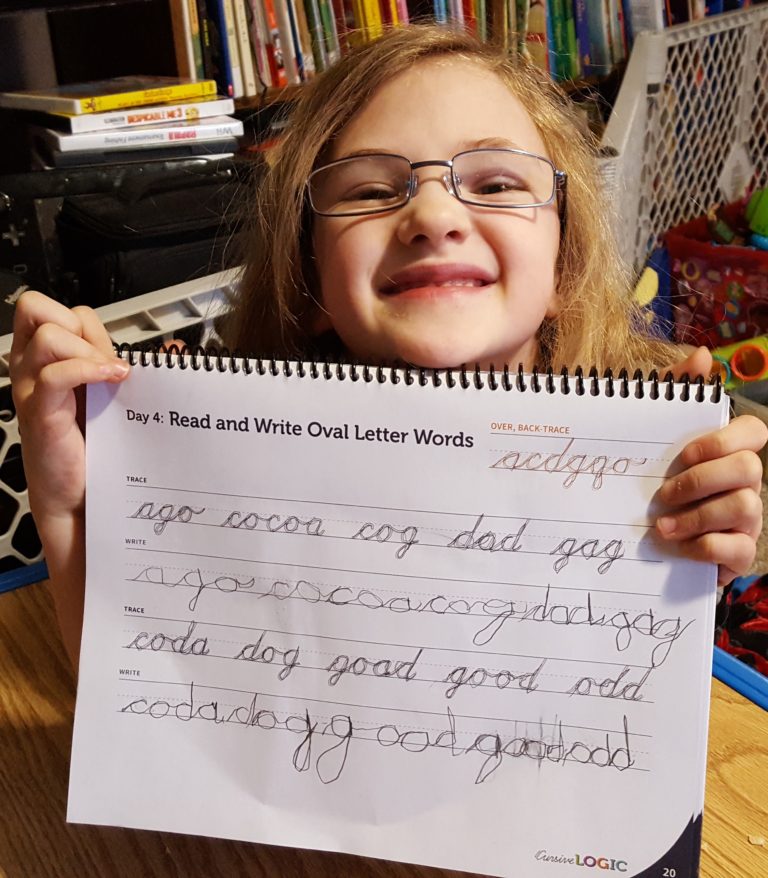 DESPICABLE ME
Wii RAPALA Tournament Fishing
Day 4: Read and Write Oval Letter Words
OVER, BACK-TRACE
acdgqo
TRACE
ago cocoa cog dad gag
WRITE
ago cocoa cog dad gag
TRACE
coda dog goad good odd
WRITE
coda dog g ood good odd
CursiveLOGIC
20